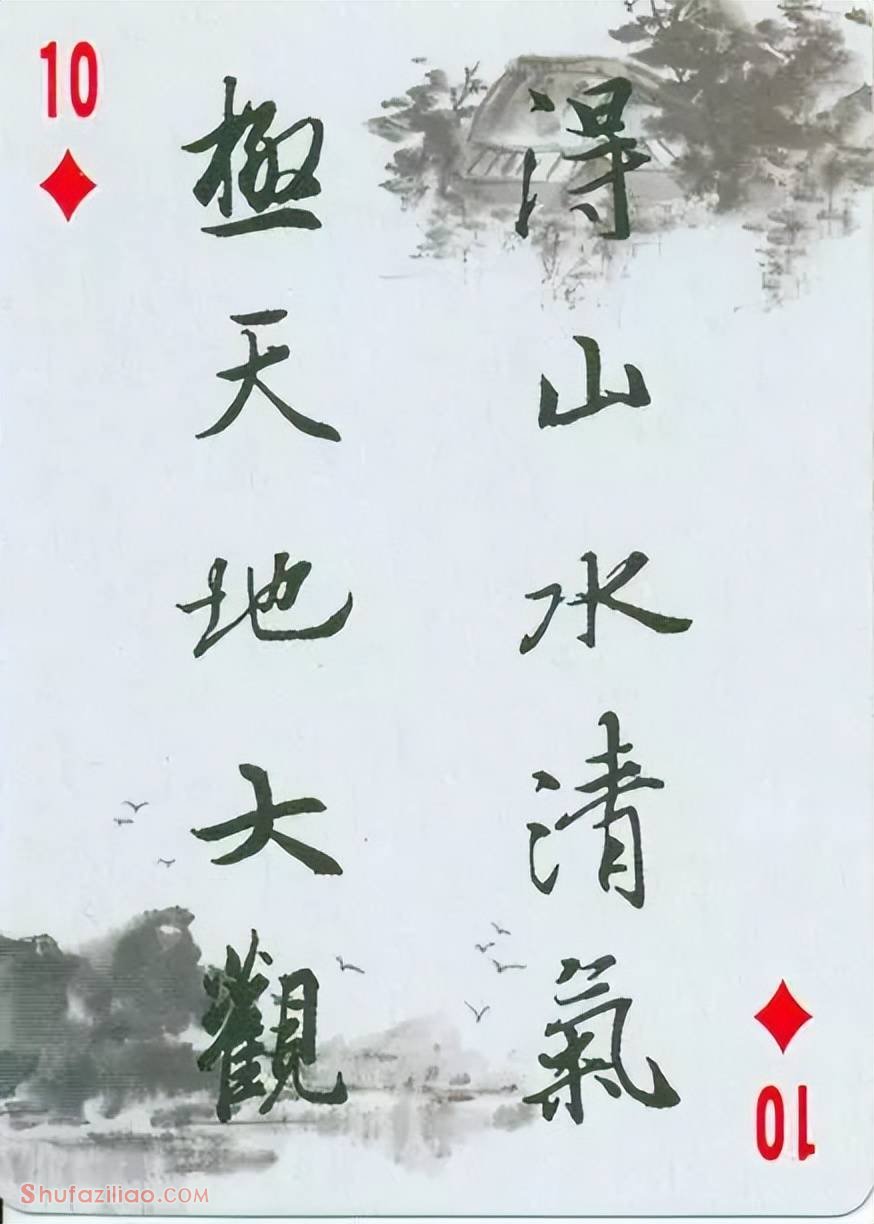 10
得山水清氣
極天地大觀
10
Shufaziliao.COM